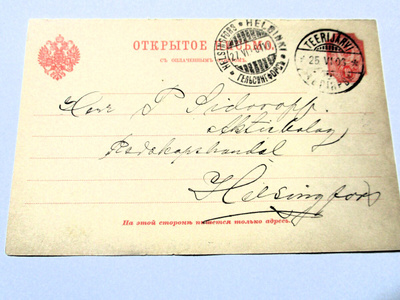 ОТКРЫТОЕ ПИСЬМО.
HELSINGFORS * HELSINKI
27.VI.05
ГЕЛЬСИНГФОРСЪ
TEERIJÄRVI
26.VI.05
Herr P Sidoroff
Aktiebolag
Redskapshandel
Helsingfors
На этой сторонѣ пишется только адресъ.